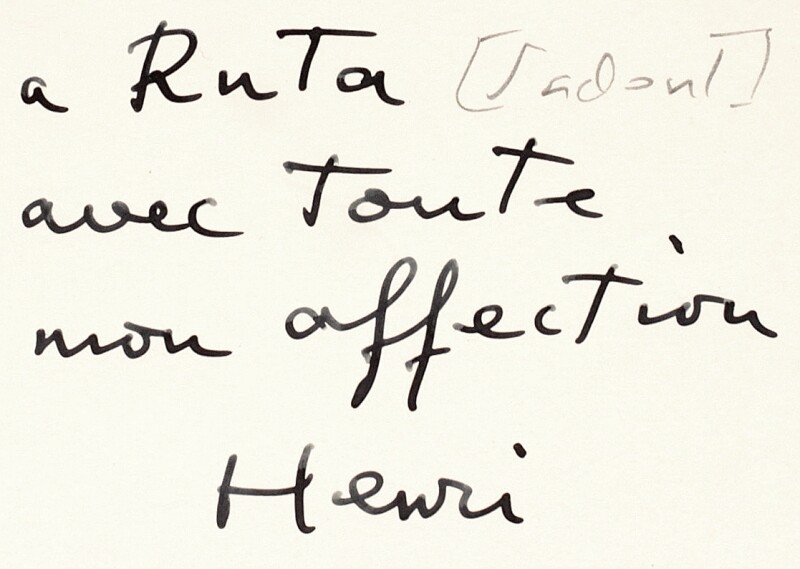 a Ruta [Sadoul]
avec toute
mon affection
Henri